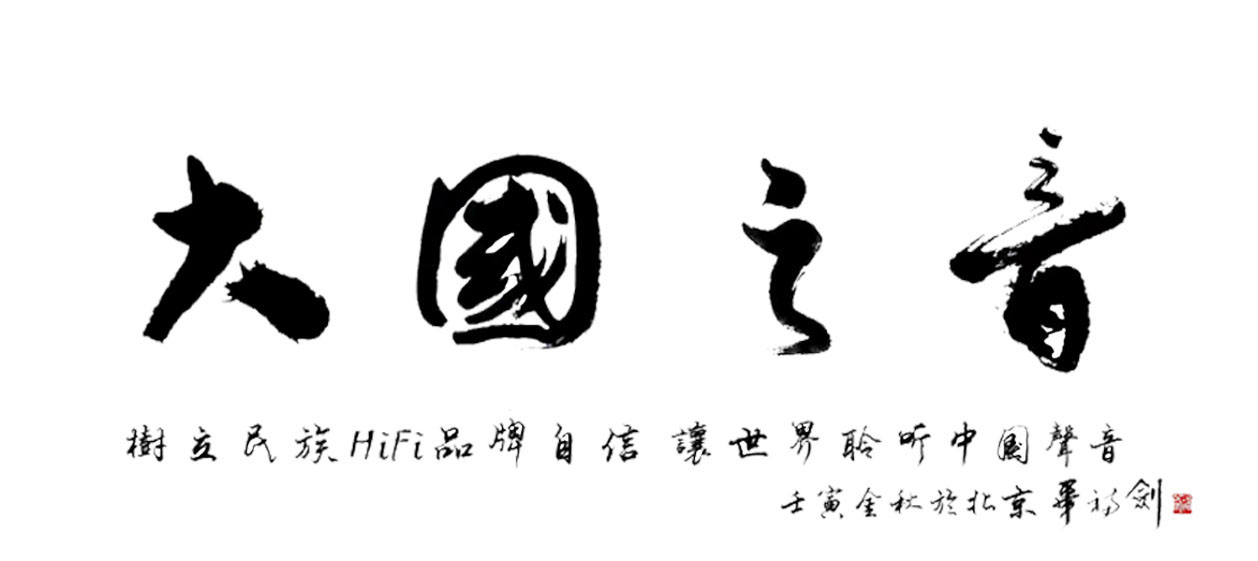 大國之音
樹立民族HiFi品牌自信 讓世界聆听中國聲音
壬寅金秋於北京